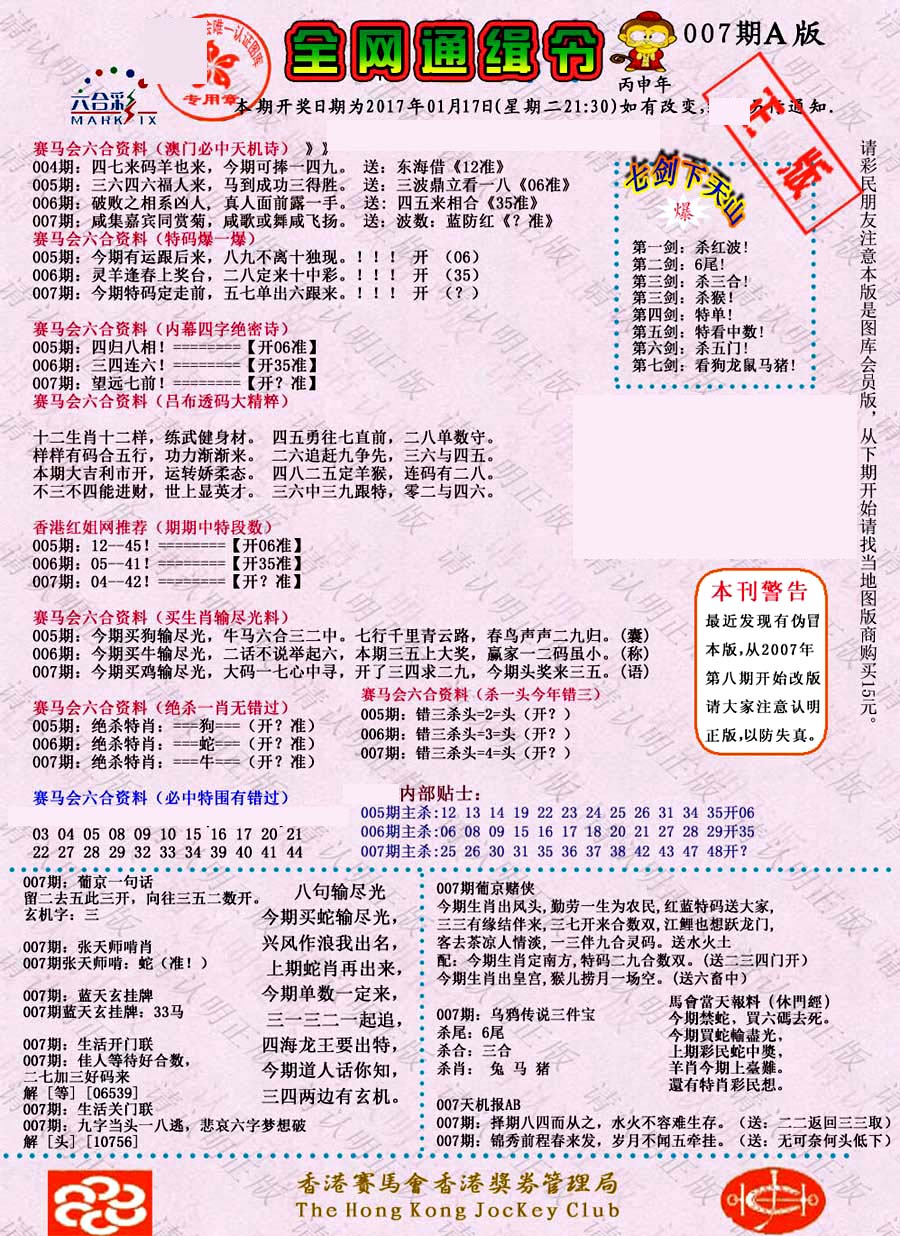 全网通缉令
007期A版
丙申年
唯一认证图库
专用章
正版
六合彩
MARK SIX
本期开奖日期为2017年01月17日(星期二21:30)如有改变,
通知.
赛马会六合资料（澳门必中天机诗）》》
004期：四七来码羊也来，今期可捧一四九。 送：东海借《12准》
005期：三六四六福人来，马到成功三得胜。 送：三波鼎立看一八《06准》
006期：破败之相系凶人，真人面前露一手。 送：四五来相合《35准》
007期：咸集嘉宾同赏菊，咸歌或舞咸飞扬。 送：波数：蓝防红《？准》
赛马会六合资料（特码爆一爆）
005期：今期有运跟后来，八九不离十独现。！！！ 开 （06）
006期：灵羊逢春上奖台，二八定来十中彩。！！！ 开 （35）
007期：今期特码定走前，五七单出六跟来。！！！ 开 （？）
赛马会六合资料（内幕四字绝密诗）
005期：四归八相！========【开06准】
006期：三四连六！========【开35准】
007期：望远七前！========【开？准】
赛马会六合资料（吕布透码大精粹）
十二生肖十二样，练武健身材。 四五勇往七直前，二八单数守。
样样有码合五行，功力渐渐来。 二六追赶九争先，三六与四五。
本期大吉利市开，运转娇柔态。 四八二五定羊猴，连码有二八。
不三不四能进财，世上显英才。 三六中三九跟特，零二与四六。
香港红姐网推荐（期期中特段数）
005期：12--45！========【开06准】
006期：05--41！========【开35准】
007期：04--42！========【开？准】
赛马会六合资料（买生肖输尽光料）
005期：今期买狗输尽光，牛马六合三二中。七行千里青云路，春鸟声声二九归。(囊)
006期：今期买牛输尽光，二话不说举起六，本期三五上大奖，赢家一二码虽小。(称)
007期：今期买鸡输尽光，大码一七心中寻，开了三四求二九，今期头奖来三五。(语)
赛马会六合资料（绝杀一肖无错过）
005期：绝杀特肖：===狗===（开？准）
006期：绝杀特肖：===蛇===（开？准）
007期：绝杀特肖：===牛===（开？准）
赛马会六合资料（杀一头今年错三）
005期：错三杀头=2=头（开？）
006期：错三杀头=3=头（开？）
007期：错三杀头=4=头（开？）
赛马会六合资料（必中特围有错过）
03 04 05 08 09 10 15 16 17 20 21
22 27 28 29 32 33 34 39 40 41 44
内部贴士：
005期主杀:12 13 14 19 22 23 24 25 26 31 34 35开06
006期主杀:06 08 09 15 16 17 18 20 21 27 28 29开35
007期主杀:25 26 30 31 35 36 37 38 42 43 47 48开？
七剑下天山
爆
第一剑：杀红波！
第二剑：6尾！
第三剑：杀三合！
第三剑：杀猴！
第四剑：特单！
第五剑：特看中数！
第六剑：杀五门！
第七剑：看狗龙鼠马猪！
请彩民朋友注意本版是图库会员版，从下期开始请找当地图版商购买15元。
本刊警告
最近发现有伪冒
本版,从2007年
第八期开始改版
请大家注意认明
正版,以防失真。
007期：葡京一句话
留二去五此三开，向往三五二数开。
玄机字：三
007期：张天师啃肖
007期张天师啃：蛇（准！）
007期：蓝天玄挂牌
007期蓝天玄挂牌：33马
007期：生活开门联
007期：佳人等待好合数，
二七加三好码来
解［等］[06539]
007期：生活关门联
007期：九字当头一八逃，悲哀六字梦想破
解［头］[10756]
八句输尽光
今期买蛇输尽光，
兴风作浪我出名，
上期蛇肖再出来，
今期单数一定来，
三一三二一起追，
四海龙王要出特，
今期道人话你知，
三四两边有玄机。
007期葡京赌侠
今期生肖出风头,勤劳一生为农民,红蓝特码送大家,
三三有缘结伴来,三七开来合数双,江鲤也想跃龙门,
客去茶凉人情淡,一三伴九合灵码。送水火土
配：今期生肖定南方,特码二九合数双。(送二三四门开）
今期生肖出皇宫,猴儿捞月一场空。(送六畜中）
007期：乌鸦传说三件宝
杀尾：6尾
杀合：三合
杀肖： 兔 马 猪
馬會當天報料（休門經）
今期禁蛇、買六碼去死。
今期買蛇輸盡光，
上期彩民蛇中獎，
羊肖今期上臺難。
還有特肖彩民想。
007天机报AB
007期：择期八四而从之，水火不容难生存。（送：二二返回三三取）
007期：锦秀前程春来发，岁月不闻五牵挂。（送：无可奈何头低下）
香港賽馬會香港獎券管理局
The Hong Kong JocKey Club